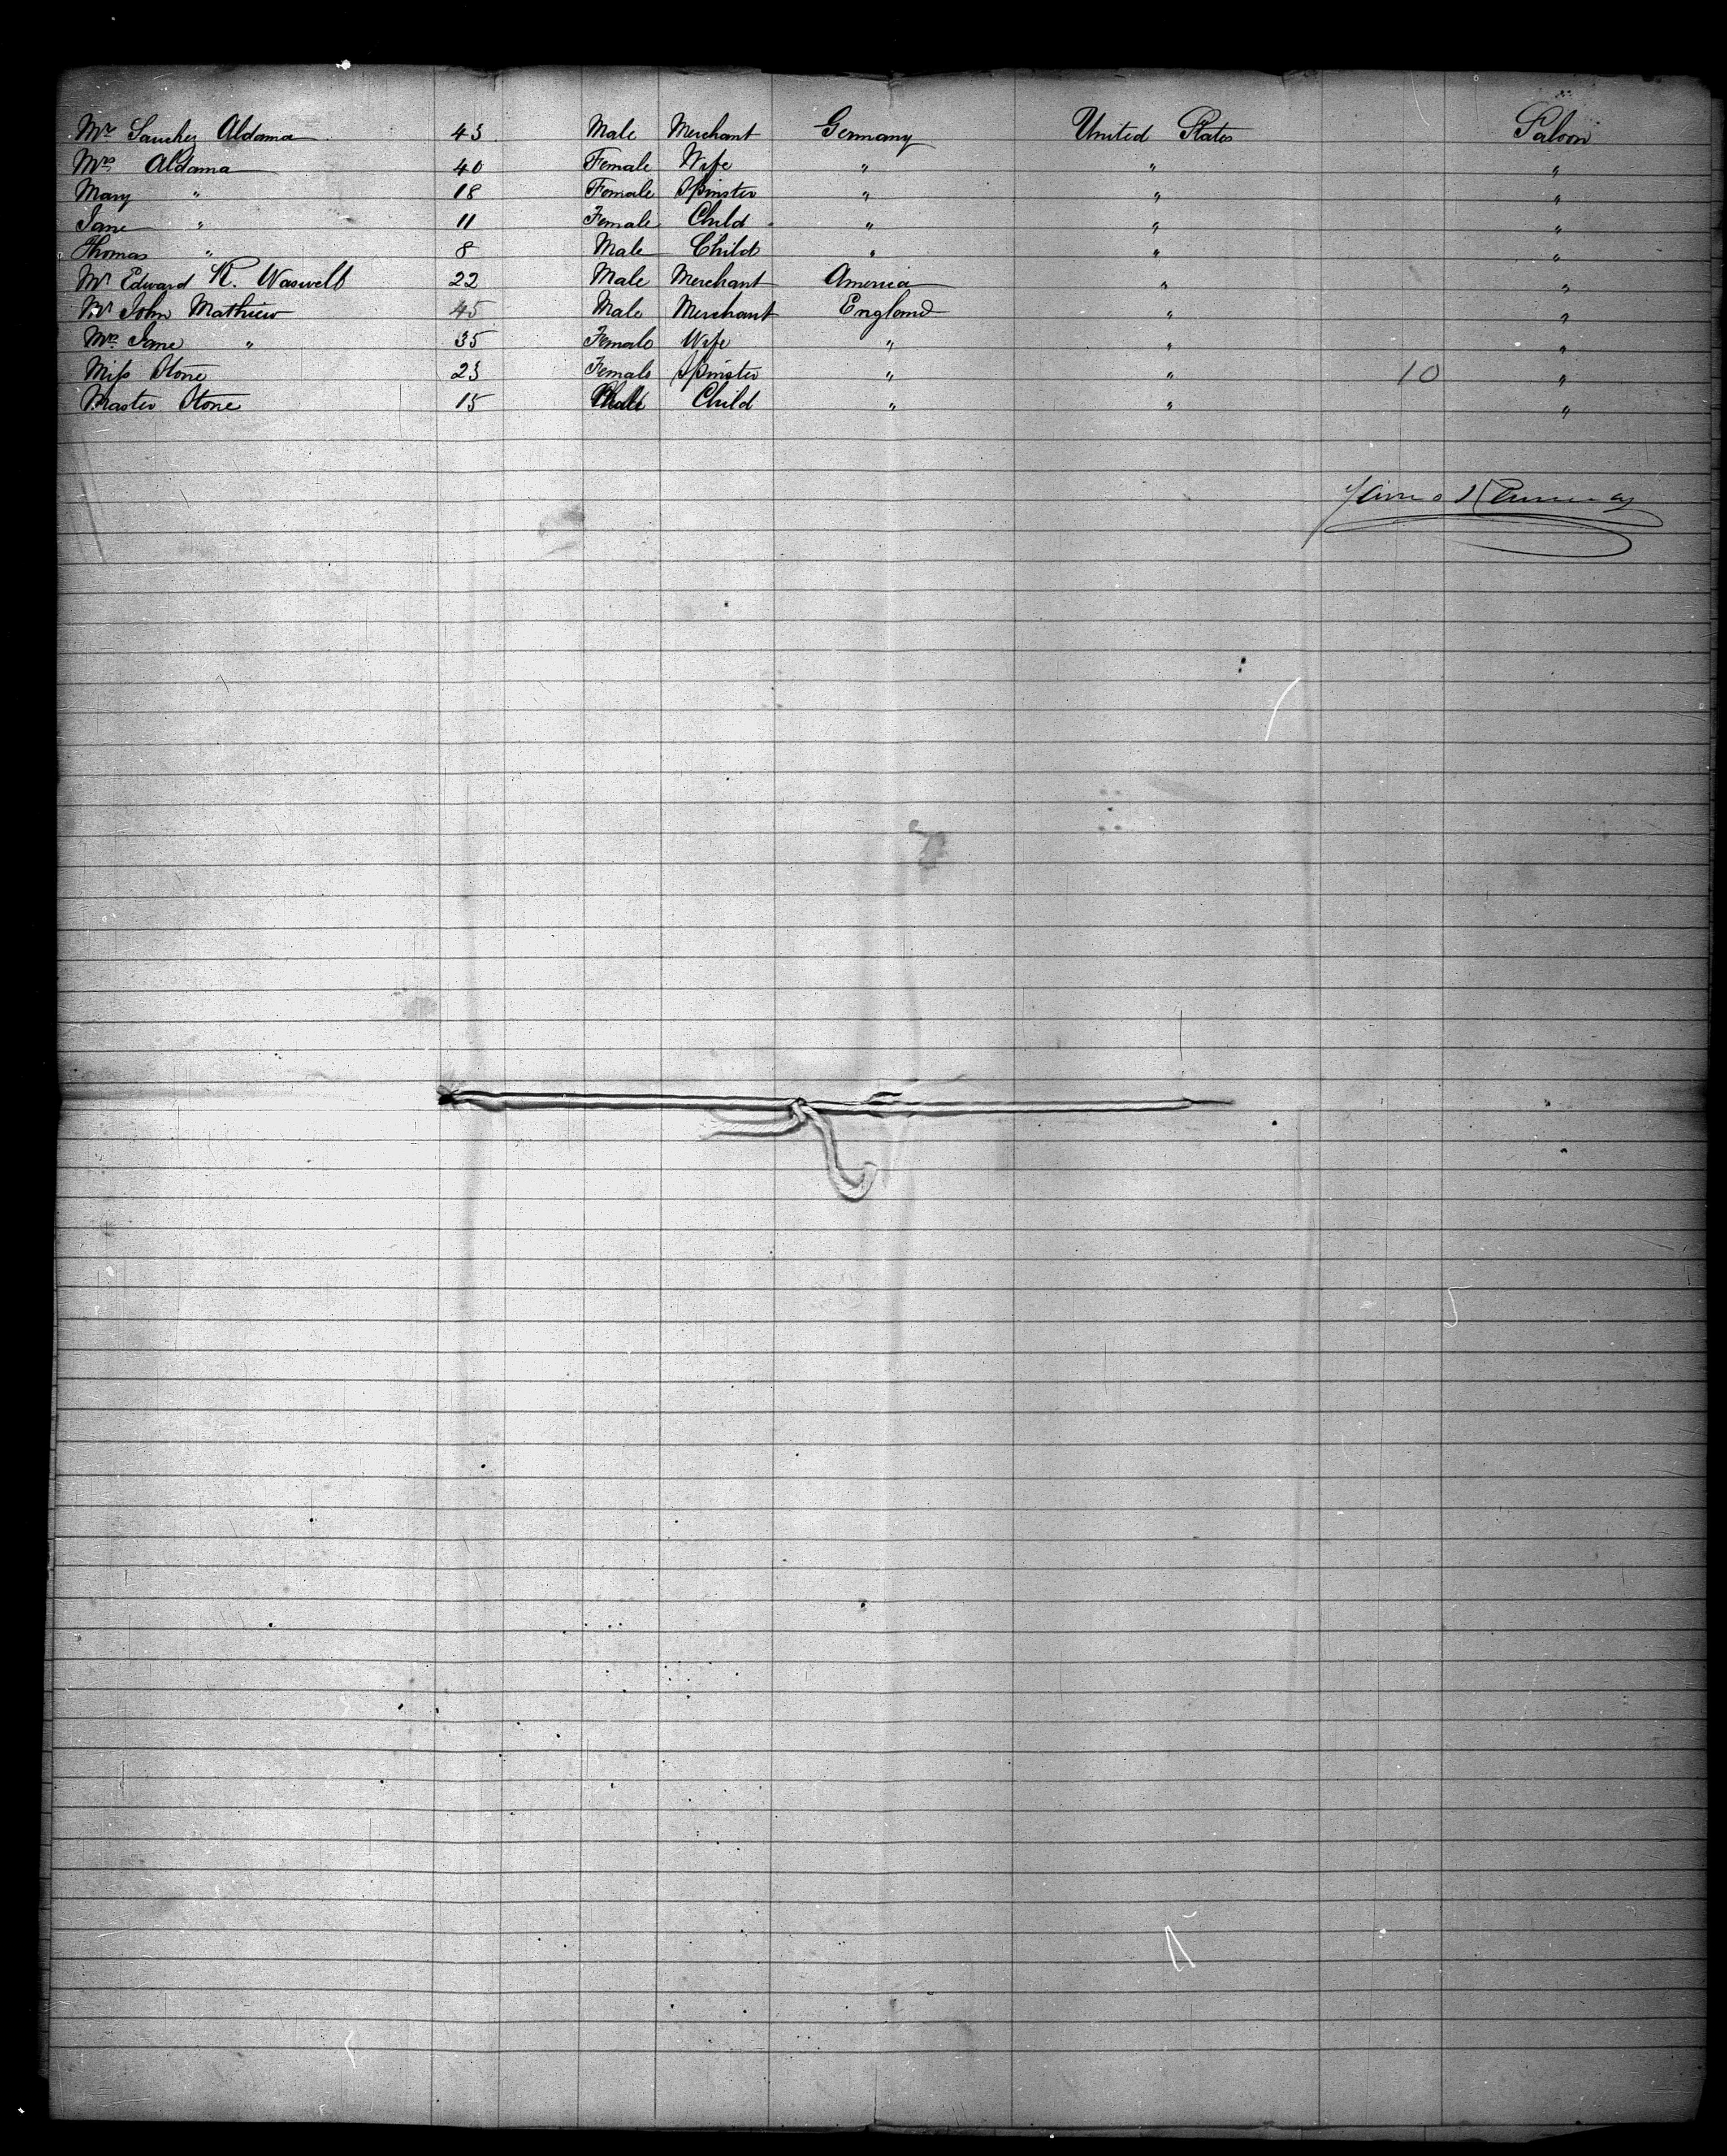 Mr Sanchez Aldama 43 Male Merchant Germany United States Saloon
Mrs Aldama 40 Female Wife " " "
Mary " 18 Female Spinster " " "
Jane " 11 Female Child " " "
Thomas " 8 Male Child " " "
Mr Edward K. Waswell 22 Male Merchant America " "
Mr John Mathiew 45 Male Merchant England " "
Mrs Jane " 35 Female Wife " " "
Miss Stone 23 Female Spinster " " 10 "
Master Stone 15 Male Child " " "
James